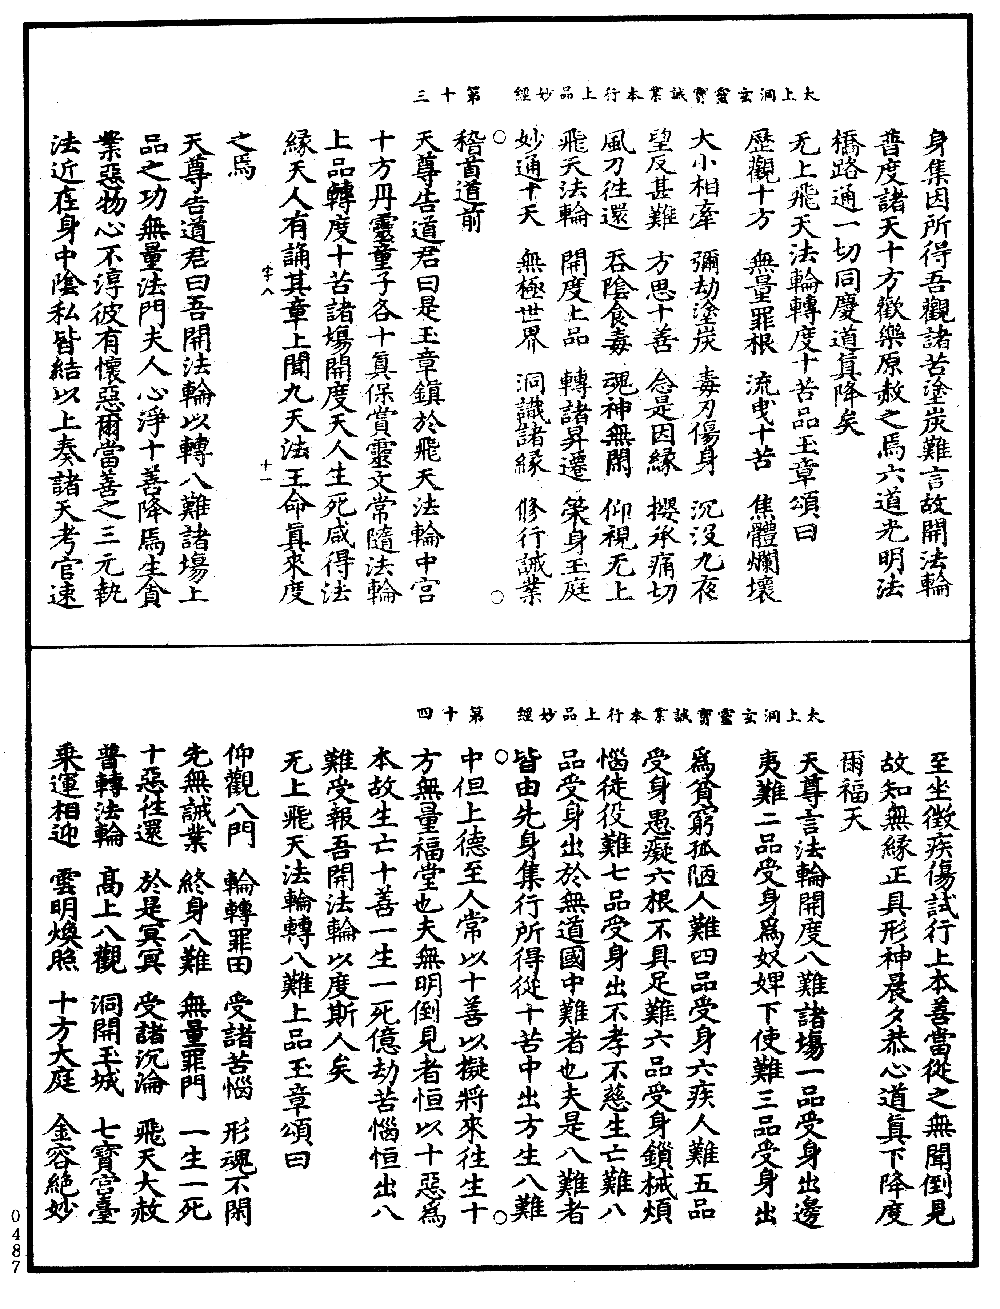 太上洞玄靈寶誡業本行上品妙經　第十三
身集因所得吾觀諸苦塗炭難言故開法輪
普度諸天十方歡樂原赦之焉六道光明法
橋路通一切同慶道真降矣
无上飛天法輪轉度十苦品玉章頌曰
歷觀十方　無量罪根　流曳十苦　焦體爛壞
大小相牽　彌劫塗炭　毒刃傷身　沉没九夜
望反甚難　方思十善　念是因緣　攖承痛切
風刀往還　吞陰食毒　魂神無閑　仰視无上
飛天法輪　開度上品　轉諸昇遷　榮身玉庭
妙通十天　無極世界　洞識諸緣　修行誡業
稽首道前
天尊告道君曰是玉章鎮於飛天法輪中宮
十方丹靈童子各十真保賞靈文常隨法輪
上品轉度十苦諸場開度天人生死咸得法
緣天人有誦其章上聞九天法王命真來度
字八　十一
之焉
天尊告道君曰吾開法輪以轉八難諸場上
品之功無量法門夫人心淨十善降焉生貪
業惡物心不淳彼有懷惡爾當善之三元執
法近在身中陰私皆結以上奏諸天考官速
太上洞玄靈寶誡業本行上品妙經　第十四
至坐徵疾傷試行上本善當從之無聞倒見
故知無緣正具形神晨夕恭心道真下降度
爾福天
天尊言法輪開度八難諸場一品受身出邊
夷難二品受身為奴婢下使難三品受身出
為貧窮孤陋人難四品受身六疾人難五品
受身愚癡六根不具足難六品受身鎖械煩
惱徒役難七品受身出不孝不慈生亡難八
品受身出於無道國中難者也夫是八難者
皆由先身集行所得從十苦中出方生八難
中但上德至人常以十善以擬將來往生十
方無量福堂也夫無明倒見者恒以十惡為
本故生亡十善一生一死億劫苦惱恒出八
難受報吾開法輪以度斯人矣
无上飛天法輪轉八難上品玉章頌曰
仰觀八門　輪轉罪田　受諸苦惱　形魂不閑
先無誡業　終身八難　無量罪門　一生一死
十惡往還　於是冥冥　受諸沉淪　飛天大赦
普轉法輪　高上八觀　洞開玉城　七寶宮臺
乘運相迎　雲明煥照　十方大庭　金容絕妙
0487